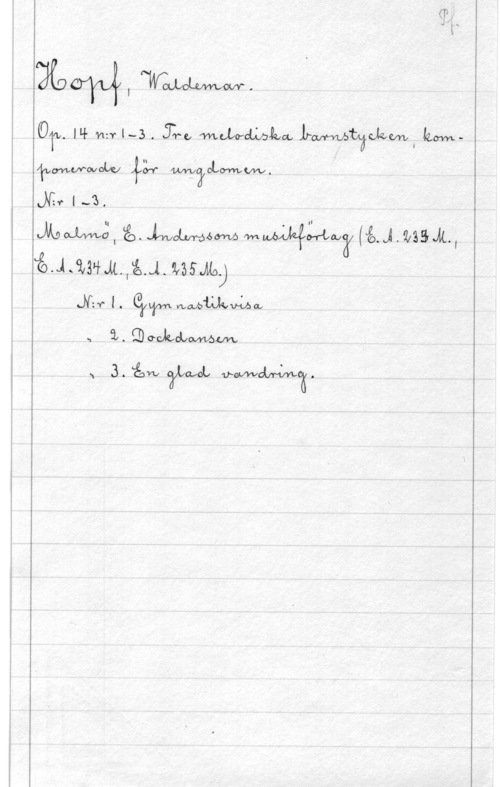 Pf.
Hopf, Waldemar.
Op. 14 n:r 1-3. Tre melodiska barnstycken, kom-
ponerade för ungdomen.
N:r 1-3.
Malmö, E. Anderssons musikförlag (E.A. 233 M.,
E.A. 234 M., E.A. 235 M.)
N:r 1. Gymnastikvisa
" 2. Dockdansen
" 3. En glad vandring.